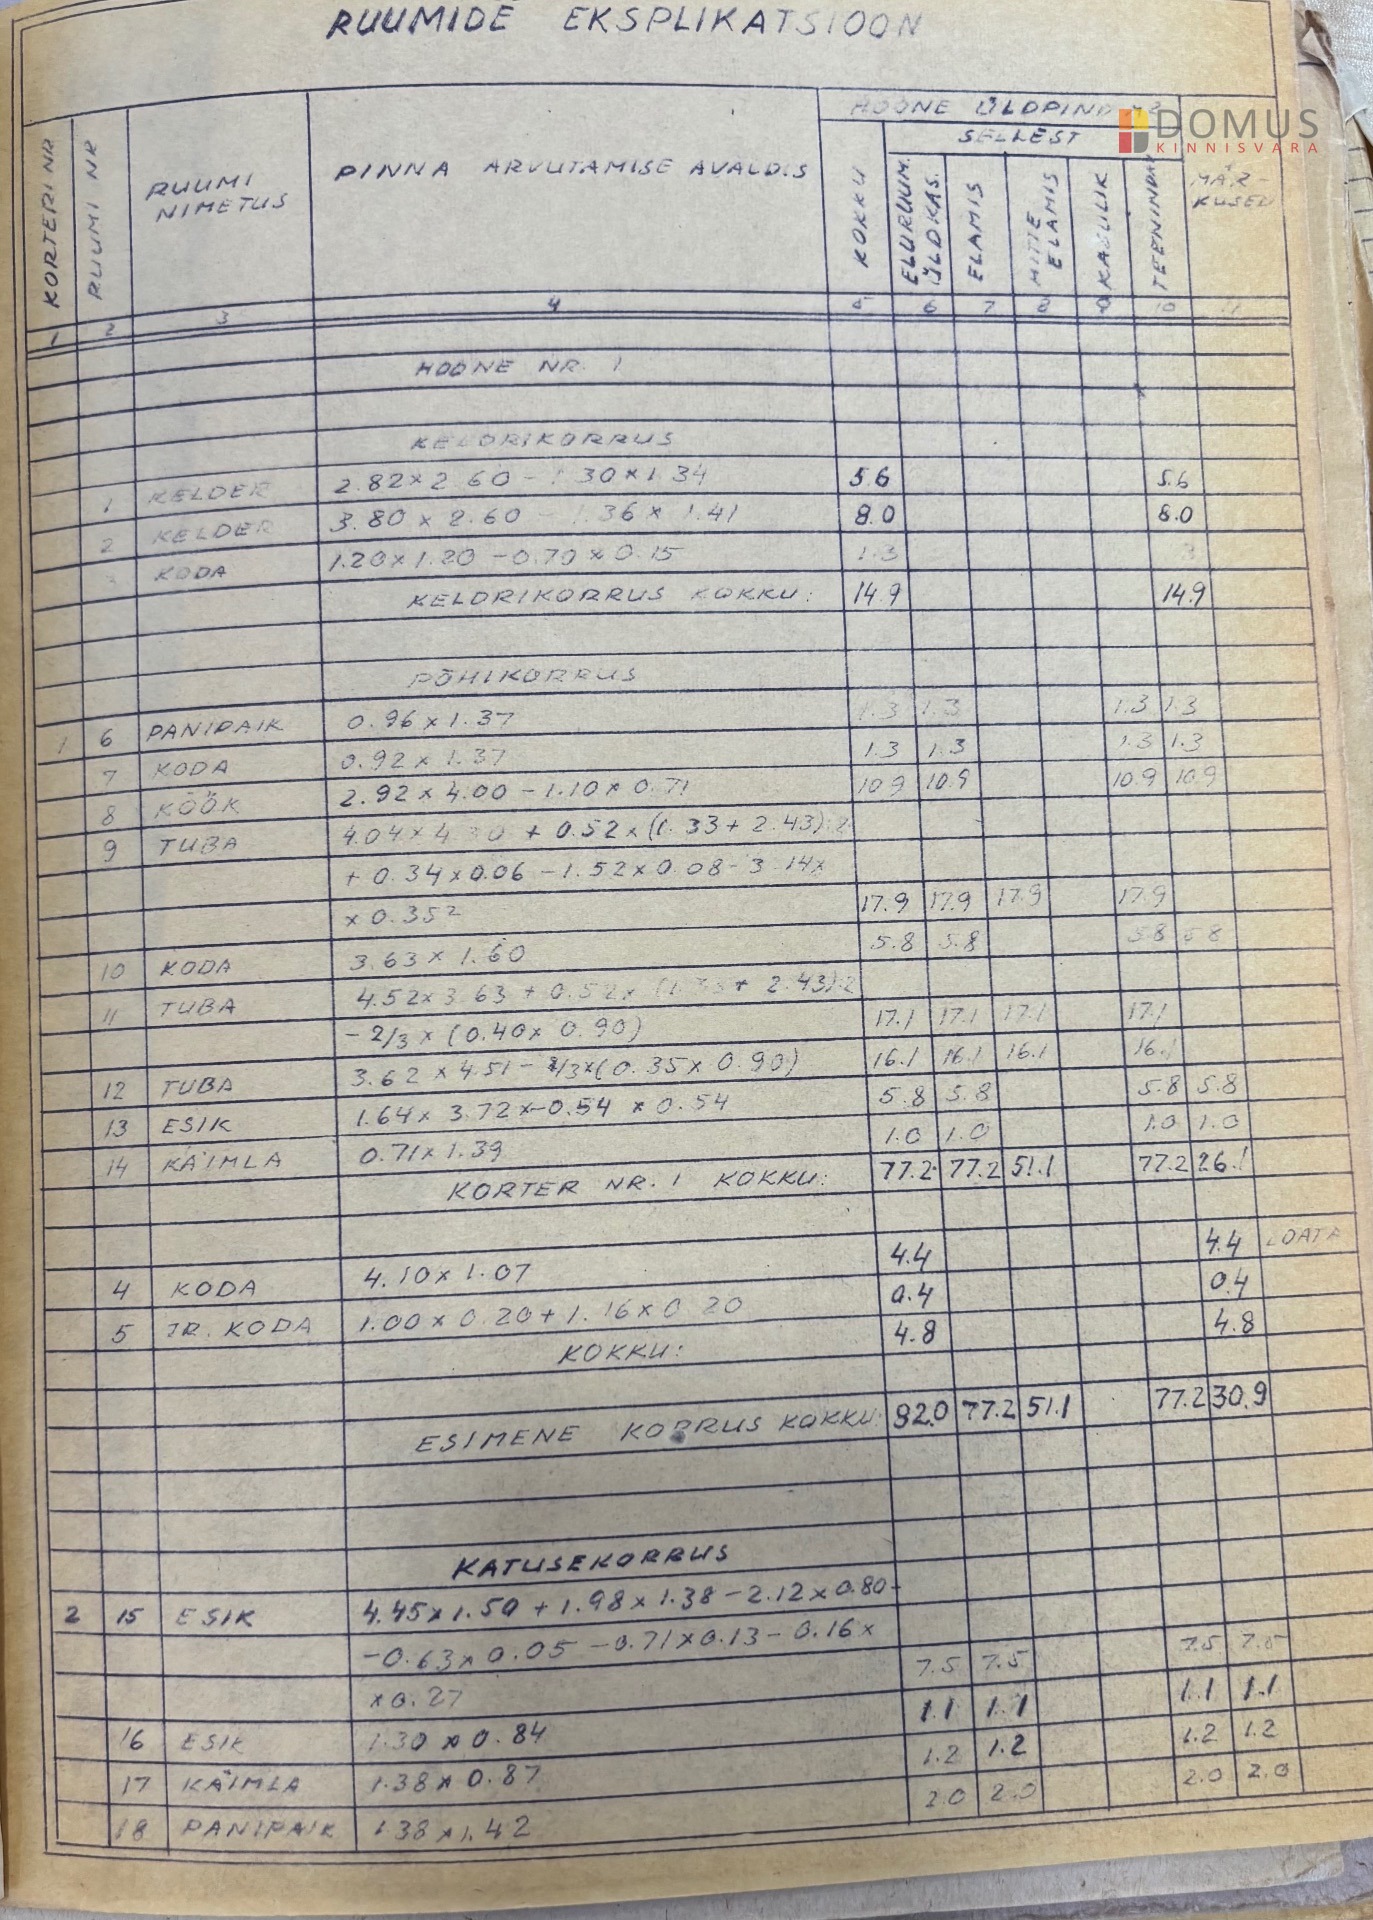 RUUMIDE EKSPLIKATSIOON
HOONE ÜLDPIND
DOMUS
KINNISVARA
SELLEST
KORTERI NR
RUUMI NR
RUUMI NIMETUS
PINNA ARVUTAMISE AVALDIS
KOKKU
ELURUUM. ÜLDKAS.
ELAMIS
MITTE ELAMIS
KASULIK
TEENINDAV
MÄR-
KUSED
1 2 3 4 5 6 7 8 9 10 11
HOONE NR. 1
KELDRIKORRUS
1 KELDER 2.82×2.60 - 1.30×1.34 5.6 5.6
2 KELDER 3.80 × 2.60 - 1.36 × 1.41 8.0 8.0
3 KODA 1.20×1.20 - 0.70×0.15 1.3 3
KELDRIKORRUS KOKKU: 14.9 14.9
PÕHIKORRUS
1 6 PANIPAIK 0.96×1.37 1.3 1.3 1.3 1.3
7 KODA 0.92×1.37 1.3 1.3 1.3 1.3
8 KÖÖK 2.92×4.00 - 1.10×0.71 10.9 10.9 10.9 10.9
9 TUBA 4.04×4.30 + 0.52×(1.33+2.43):2
+ 0.34×0.06 - 1.52×0.08 - 3.14×
×0.35² 17.9 17.9 17.9 17.9
10 KODA 3.63×1.60 5.8 5.8 5.8 5.8
11 TUBA 4.52×3.63 + 0.52× (1.33+ 2.43):2
- 2/3 × (0.40× 0.90) 17.1 17.1 17.1 17.1
12 TUBA 3.62 × 4.51 - 2/3×(0.35× 0.90) 16.1 16.1 16.1 16.1
13 ESIK 1.64× 3.72×-0.54 × 0.54 5.8 5.8 5.8 5.8
14 KÄIMLA 0.71×1.39 1.0 1.0 1.0 1.0
KORTER NR. 1 KOKKU: 77.2 77.2 51.1 77.2 26.1
4 KODA 4.10×1.07 4.4 4.4
5 TR. KODA 1.00× 0.20+1.16×0.20 0.4 0.4
KOKKU: 4.8 4.8
ESIMENE KORRUS KOKKU: 82.0 77.2 51.1 77.2 30.9
KATUSEKORRUS
2 15 ESIK 4.45×1.50 + 1.98×1.38 - 2.12×0.80-
-0.63×0.05 -0.71×0.13 - 0.16×
×0.27 7.5 7.5 7.5 7.5
16 ESIK 1.30×0.84 1.1 1.1 1.1 1.1
17 KÄIMLA 1.38×0.87 1.2 1.2 1.2 1.2
18 PANIPAIK 1.38×1.42 2.0 2.0 2.0 2.0